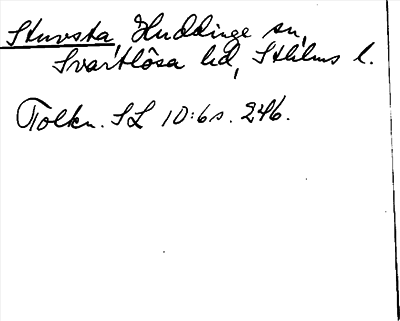 Stuvsta, Huddinge sn,
Svartlösa hd, Sthlms l.
Tolkn. SL 10:6 s. 246.